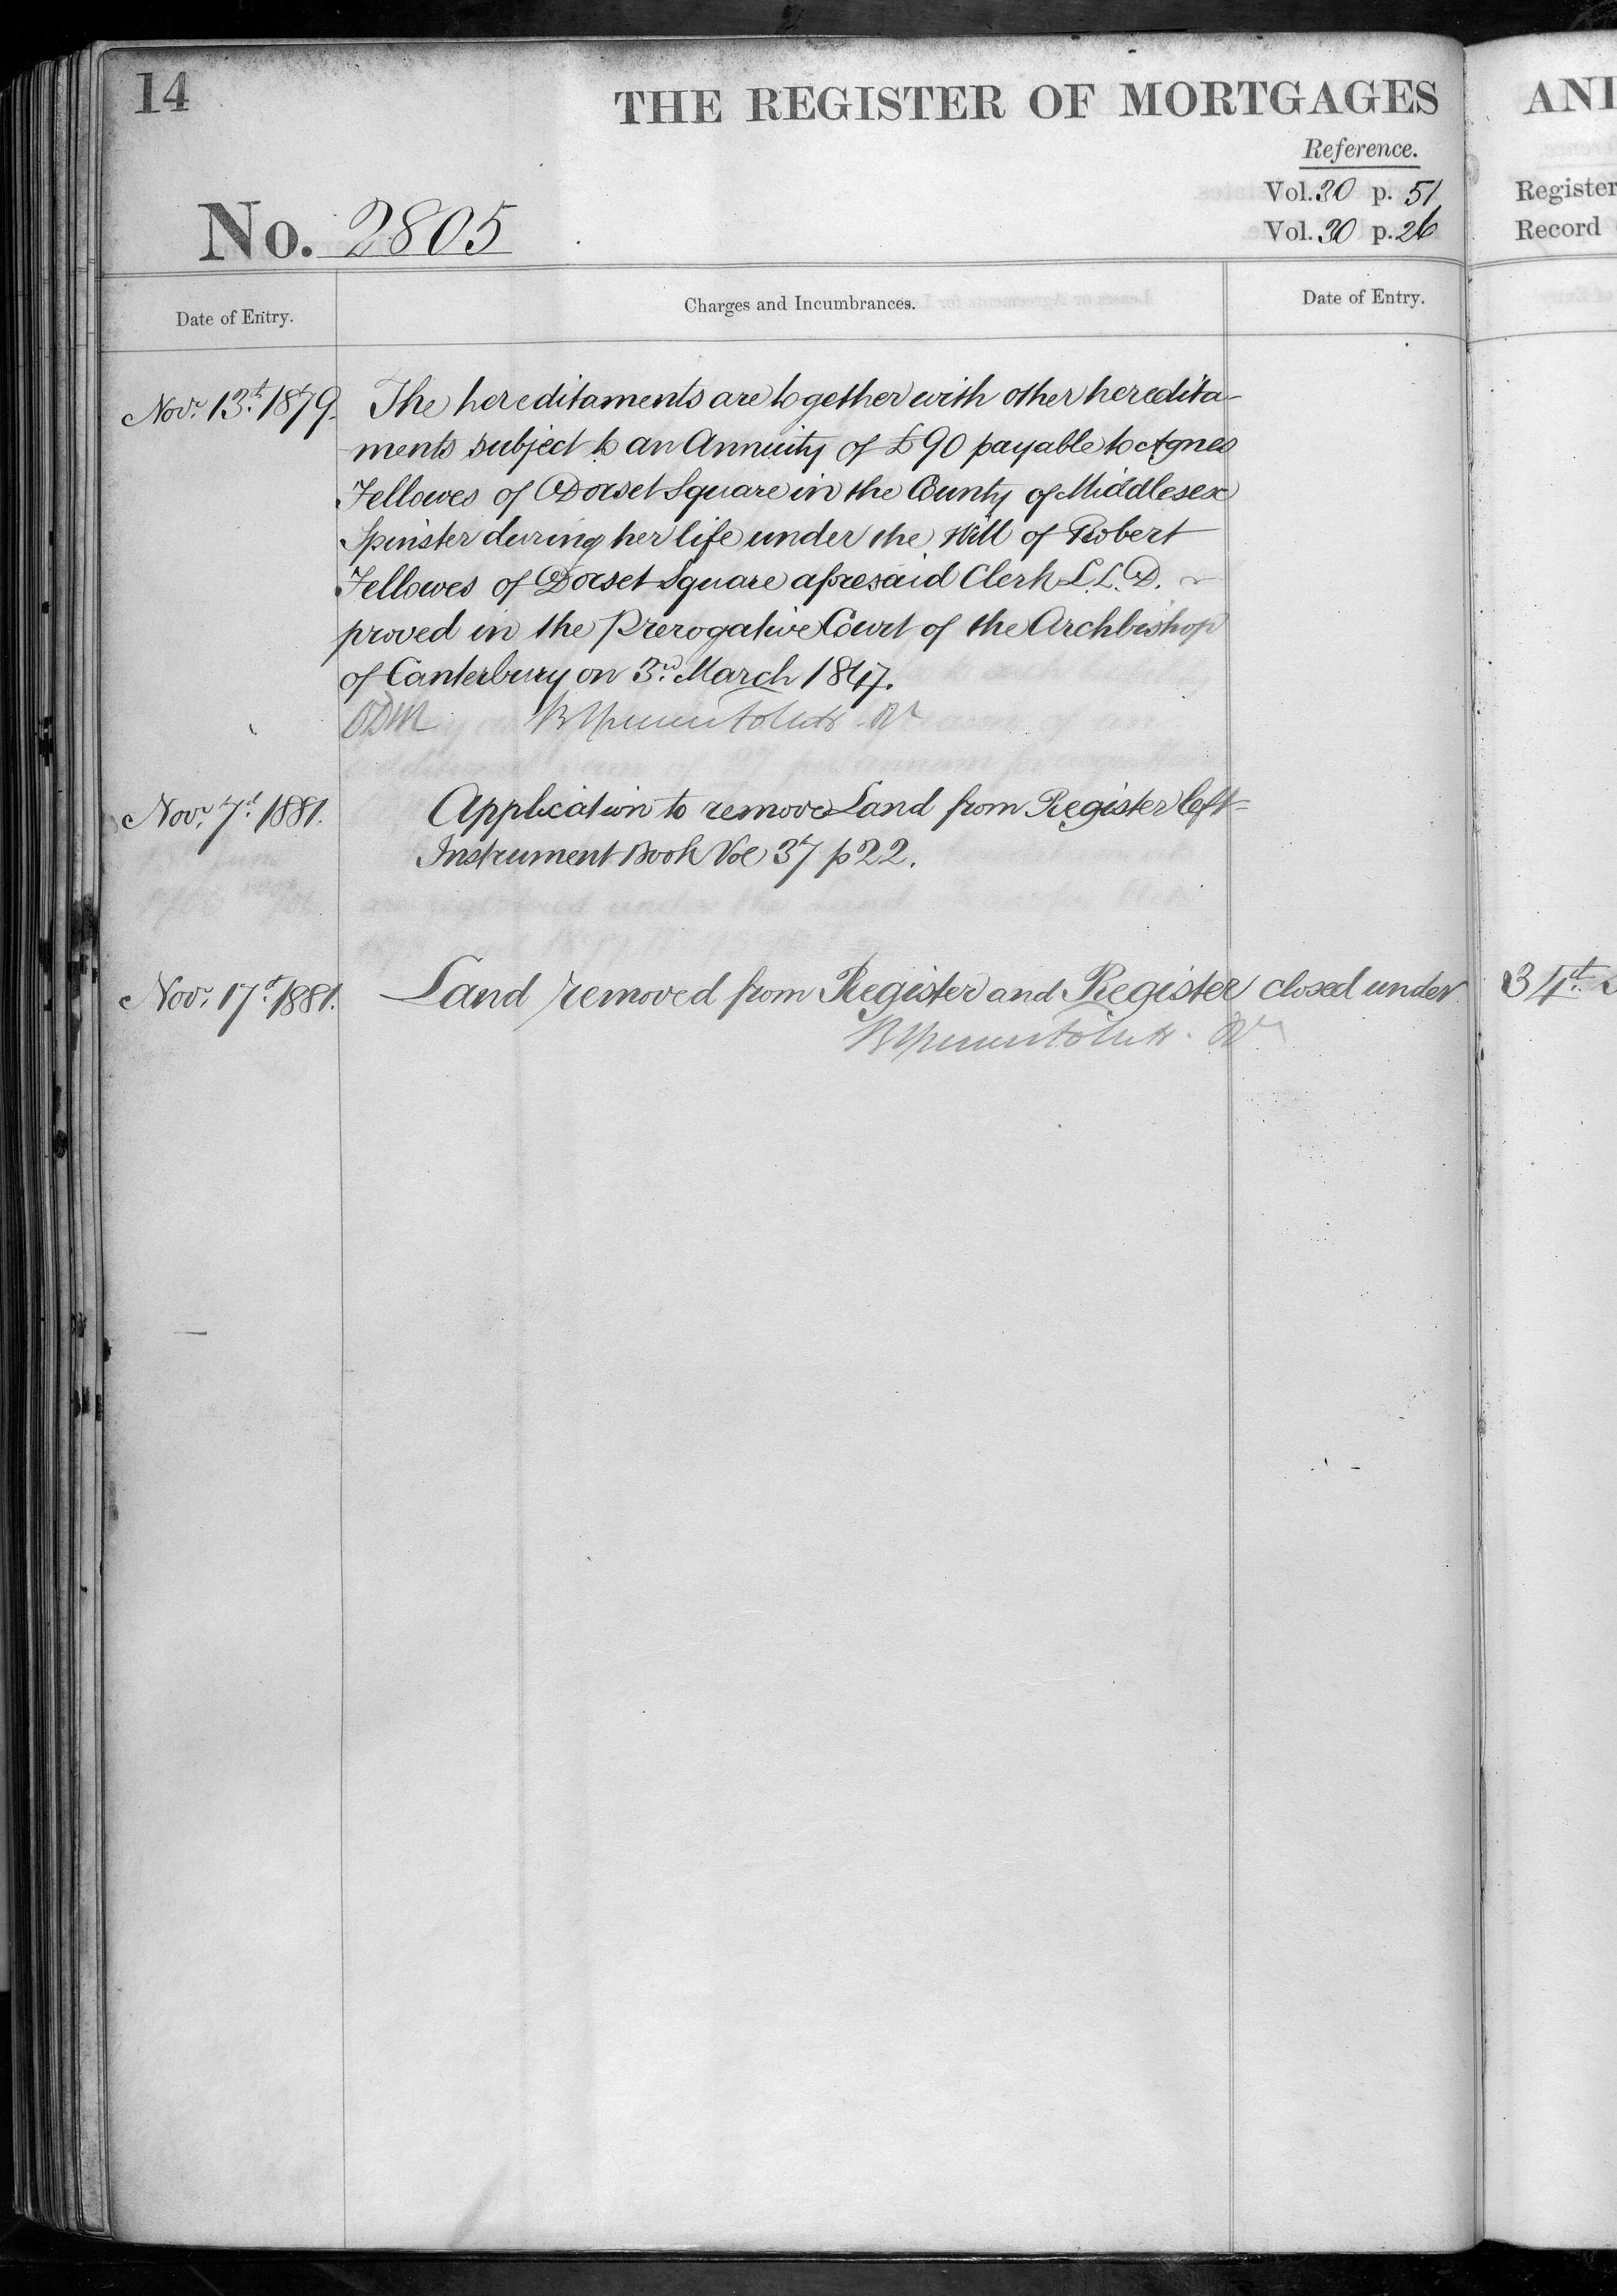 14
THE REGISTER OF MORTGAGES
Reference.
Vol. 30 p. 51
Vol. 30 p. 26
No. 2805
Date of Entry.
Charges and Incumbrances.
Date of Entry.
Novr. 13t. 1879. The hereditaments are together with other heredita-
ments subject to an Annuity of £90 payable to Agnes
Fellowes of Dorset Square in the County of Middlesex
Spinster during her life under the Will of Robert
Fellowes of Dorset Square aforesaid Clerk L.L.D.
proved in the Prerogative Court of the Archbishop
of Canterbury on 3rd. March 1847.
Novr. 7t. 1881. Application to remove Land from Register left
Instrument Book Vol 37 p 22.
Novr. 17t. 1881. Land removed from Register and Register closed under 34t.
ANI
Register
Record